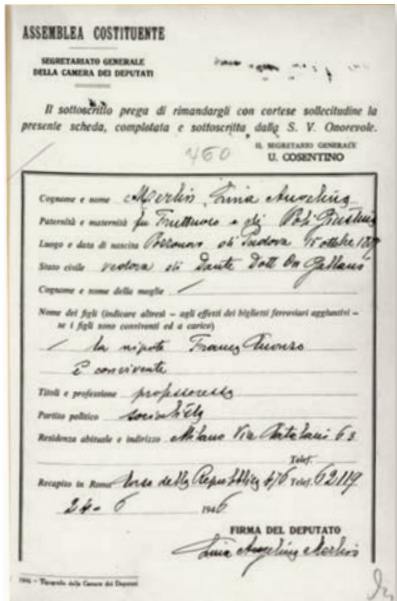 ASSEMBLEA COSTITUENTE
SEGRETARIATO GENERALE
DELLA CAMERA DEI DEPUTATI
Il sottoscritto prega di rimandargli con cortese sollecitudine la
presente scheda, completata e sottoscritta dalla S. V. Onorevole.
IL SEGRETARIO GENERALE
U. COSENTINO
450
Cognome e nome Merlin Lina Angelina
Paternità e maternità fu Fruttuoso e di Poli Giustina
Luogo e data di nascita Pozzonovo di Padova 15 ottobre
Stato civile vedova di Dante Dott On Gallani
Cognome e nome della moglie /
Nome dei figli (indicare altresì - agli effetti dei biglietti ferroviari aggiuntivi -
se i figli sono conviventi ed a carico)
/ la nipote Franca
è convivente
Titoli e professione professoressa
Partito politico socialista
Residenza abituale e indirizzo Milano Via 63
Telef.
Recapito in Roma della Repubblica Telef. 62119
24-6 1946
FIRMA DEL DEPUTATO
Lina Angelina Merlin
1946 - Tipografia della Camera dei Deputati